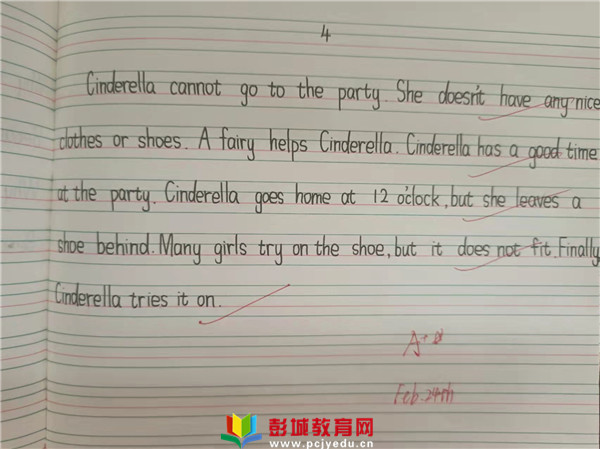 4
Cinderella cannot go to the party. She doesn't have any nice
clothes or shoes. A fairy helps Cinderella. Cinderella has a good time
at the party. Cinderella goes home at 12 o'clock, but she leaves a
shoe behind. Many girls try on the shoe, but it does not fit. Finally
Cinderella tries it on.
A+
Feb. 24th
彭城教育网
www.pcjyedu.cn